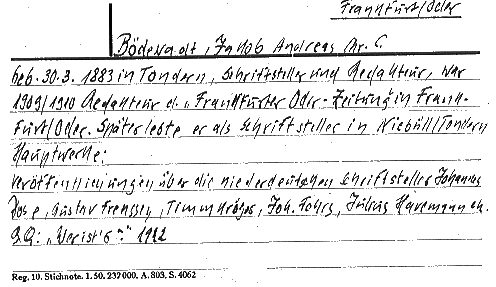 Frankfurt/Oder
Bödewadt, Jakob Andreas Chr. C.
Geb. 30.3. 1883 in Tondern, Schriftsteller und Redakteur, war
1909/1910 Redakteur d. „Frankfurter Oder-Zeitung" in Frank-
furt/Oder. Später lebte er als Schriftsteller in Niebüll/Tondern
Hauptwerke:
Veröffentlichungen über die niederdeutschen Schriftsteller Johannes
Dose, Gustav Frenssen, Timm Kröger, Joh. Fehrs, Julius Havemann
„Wer ist's“ 1922
Reg. 10. Stichnote. 1. 50. 237 000. A. 803. S. 4062